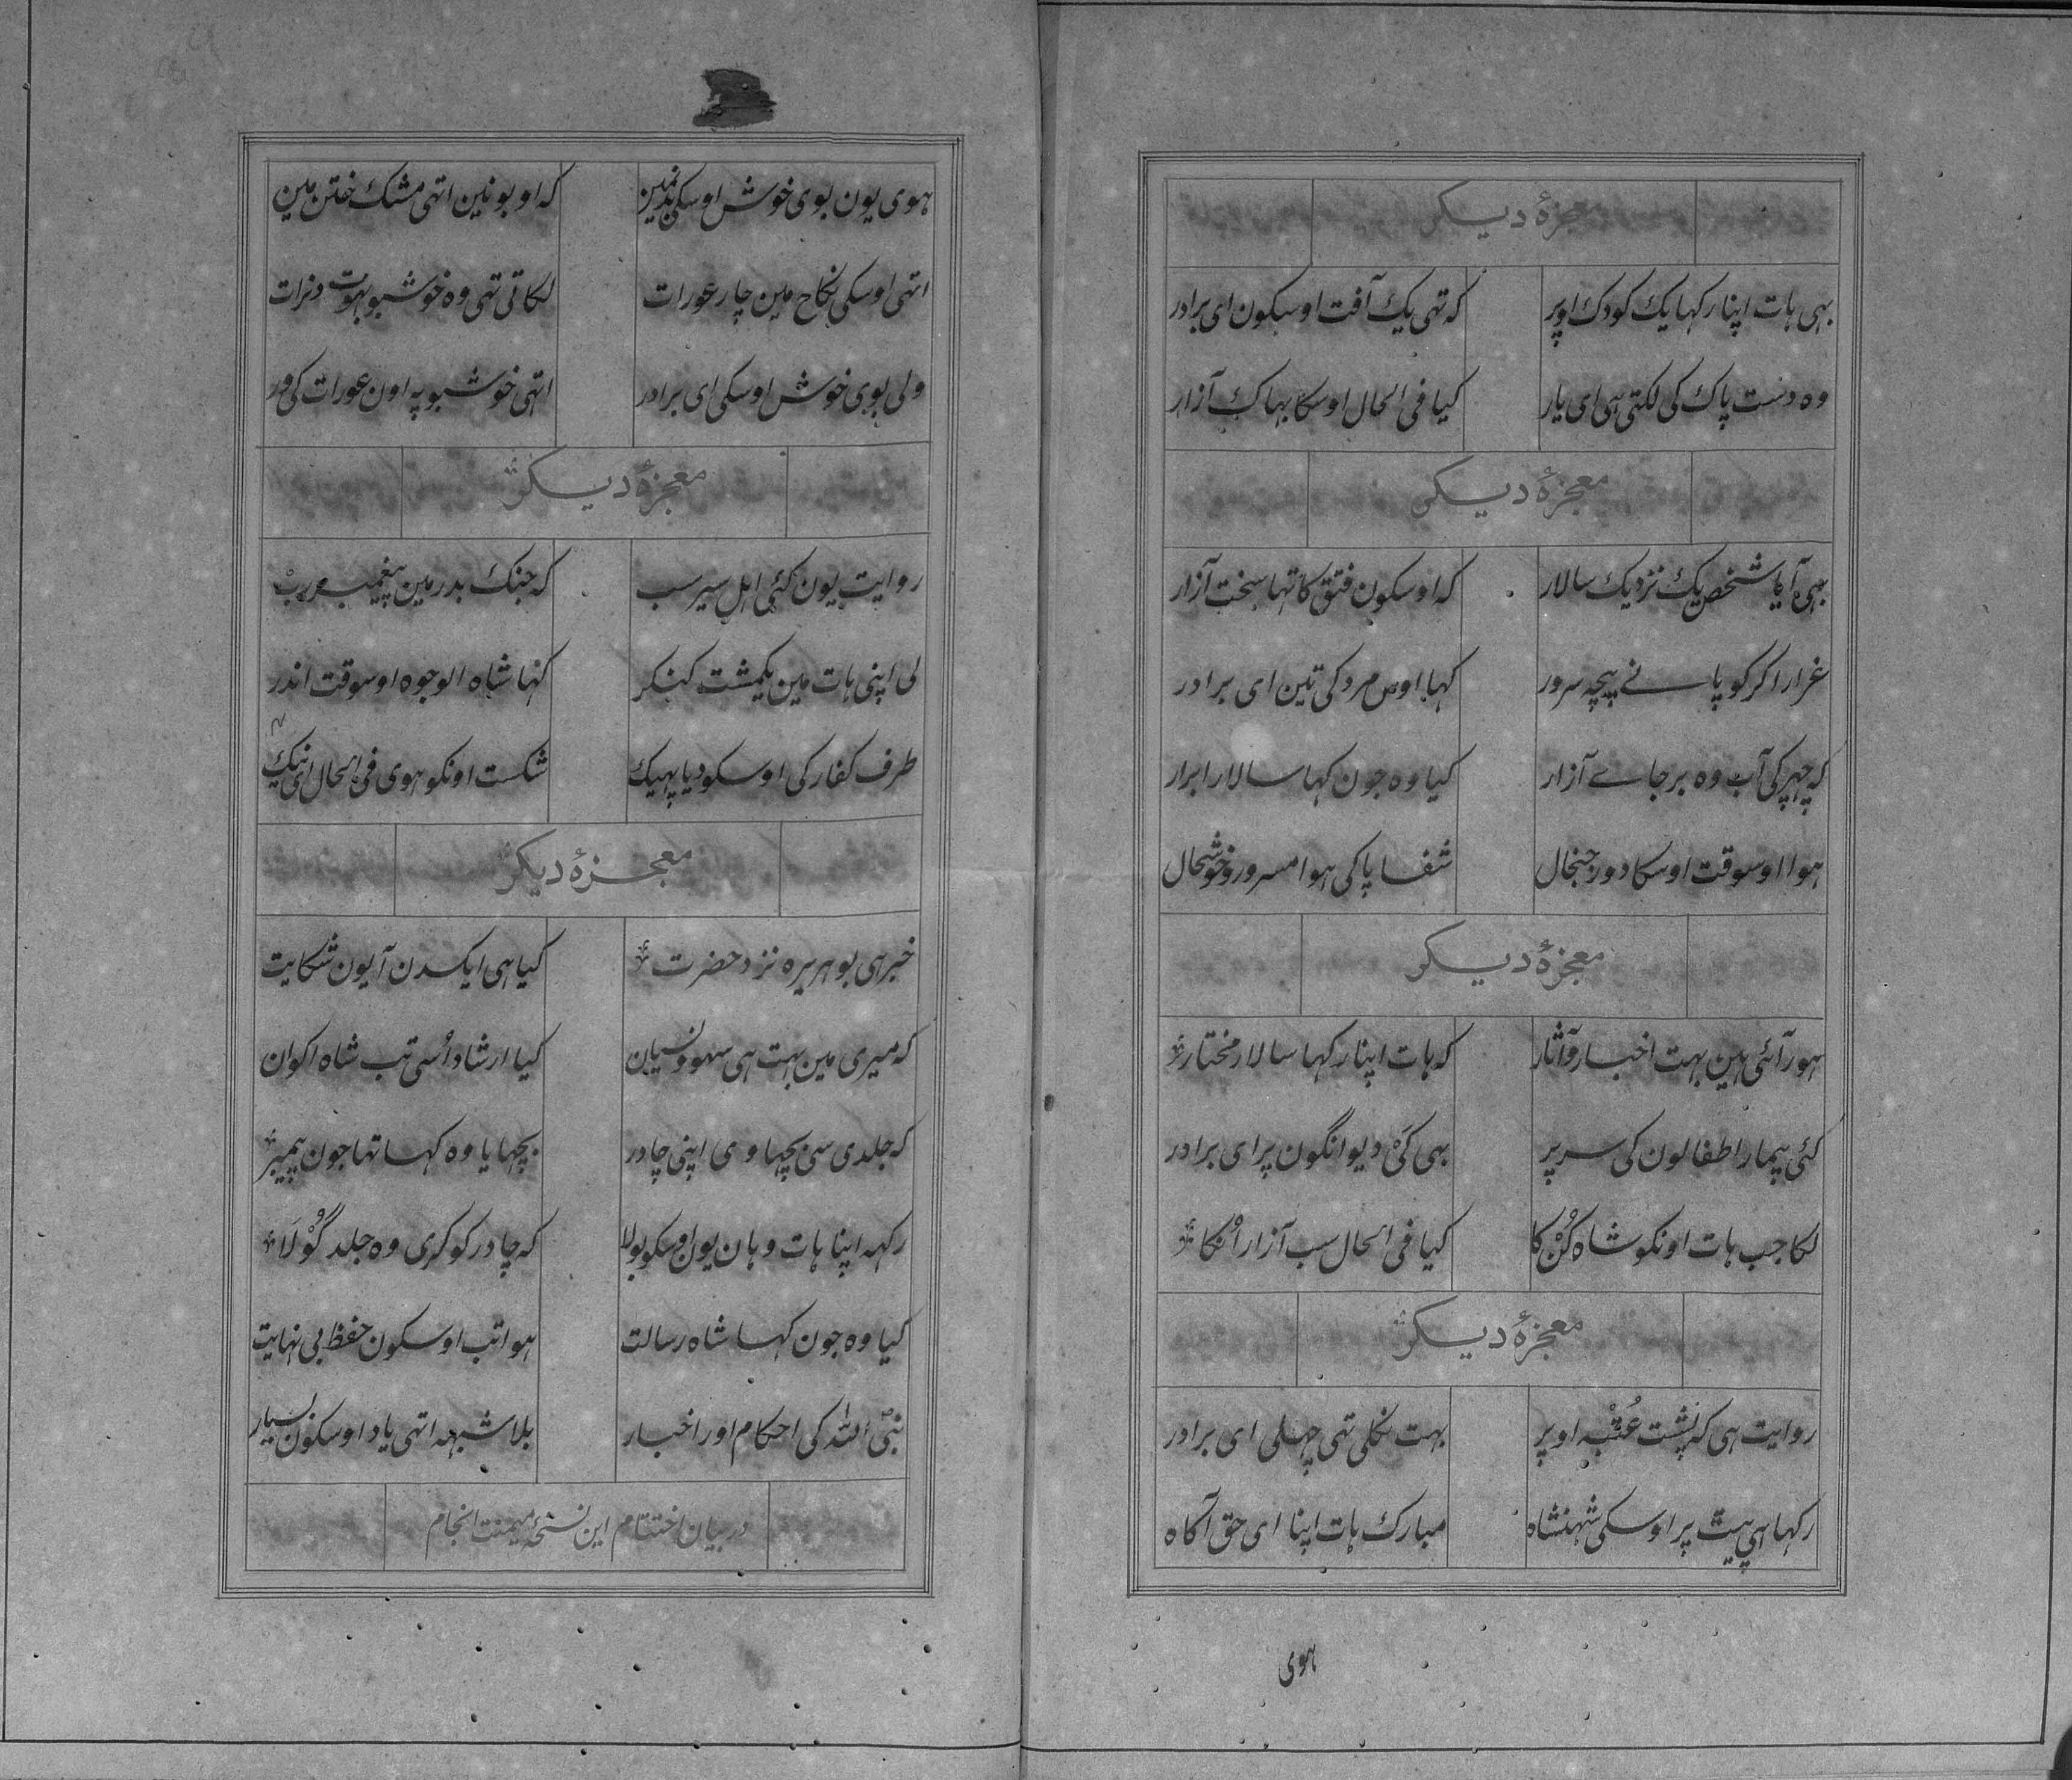 معجزۂ دیکر
بهی هات اپنا رکها یک کودک اوپر کہ تهی یک آفت اوسکون ای برادر
وه دست پاک کی لکتی هی ای یار کیا فی الحال اوسکا بهاک آزار
معجزۂ دیکر
بهی آیا شخص یک نزدیک سالار کہ اوسکون فتق کا تها سخت آزار
غرارا کرکو پانے پیچہ سرور کہا اوس مرد کی تین ای برادر
کہ چهرکی آب وه بر جاے آزار کیا وه جون کہا سالار ابرار
هوا اوسوقت اوسکا دور جنجال شفا پاکی هوا مسرور و خوشحال
معجزۂ دیکر
هور آئی هین بہت اخبار و آثار کہ هات اپنا رکها سالار مختار
کئی بیمار اطفالون کی سر پر بهی کئی دیوانگون پر ای برادر
لکا جب هات اونکو شاه کُن کا کیا فی الحال سب آزار اُنکا
معجزۂ دیکر
روایت هی کہ پشت عُتْبہ اوپر بہت نکلی تهی چهلی ای برادر
رکها هی پیٹ پر اوسکی شہنشاه مبارک هات اپنا ای حق آکاه
هوی
هوی یون بوی خوش اوسکی بدن مین کہ او بو نین اتهی مشک ختن مین
اتهی اوسکی نکاح مین چار عورات لکاتی تهی وه خوشبو بہوت دنرات
ولی بوی خوش اوسکی ای برادر اتهی خوشبو پہ اون عورات کی ور
معجزۂ دیکر
روایت یون کئی اهل سیر سب کہ جنک بدر مین پیغمبر رب
لی اپنی هات مین یکمشت کنکر کہا شاه الوجوه اوسوقت اندر
طرف کفار کی اوسکو دیا پهیک شکست اونکو هوی فی الحال ای نیک
معجزۂ دیکر
خبر هی بوهریره نزد حضرت کیا هی ایکدن آ یون شکایت
کہ میری مین بہت هی سهو و نسیان کیا ارشاد اُسی تب شاه اکوان
کہ جلدی سی بچها وی اپنی چادر بچهایا وه کہا تها جون پیمبر
رکهہ اپنا هات وهان یون اوسکو بولا کہ چادر کو کری وه جلد گُولا
کیا وه جون کہا شاه رسالت هوا تب اوسکون حفظ بی نهایت
نبی اللہ کی احکام اور اخبار بلا شبهہ اتهی یاد اوسکون بسیار
در بیان اختتام این نسخۂ میمنت انجام